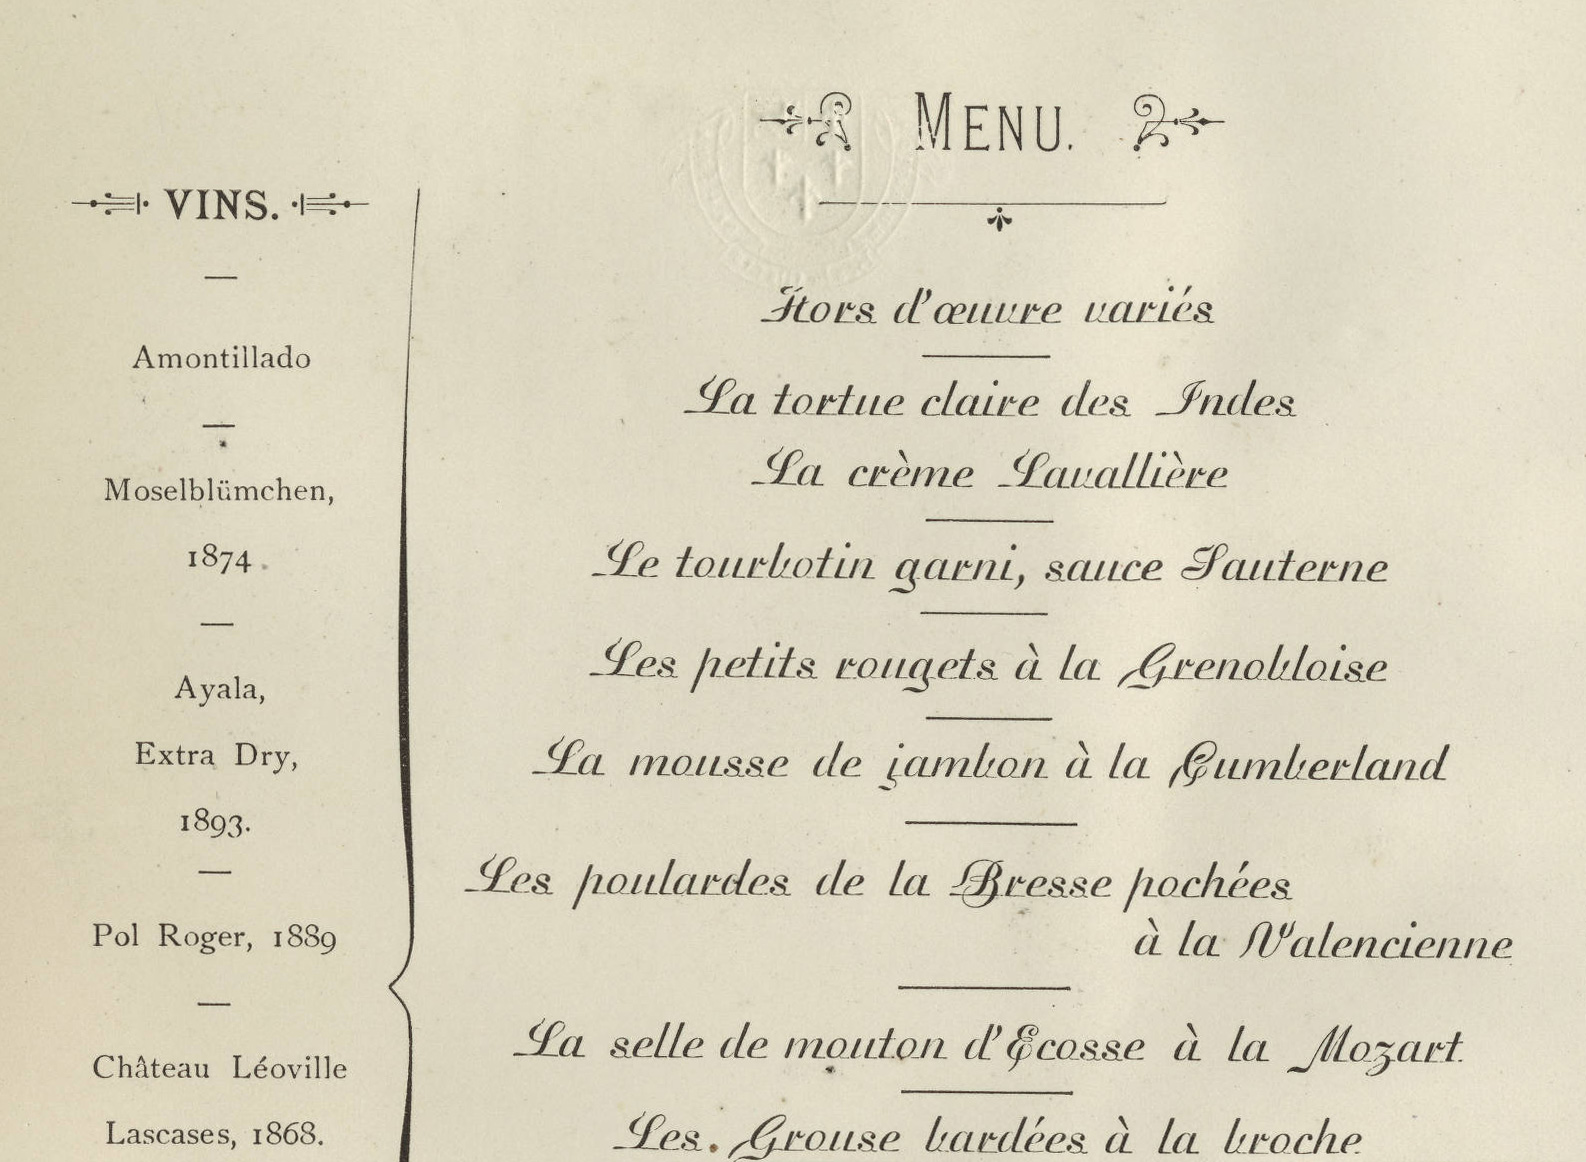 MENU.
VINS.
Amontillado
Moselblümchen,
1874.
Ayala,
Extra Dry,
1893.
Pol Roger, 1889
Château Léoville
Lascases, 1868.
Hors d'œuvre variés
La tortue claire des Indes
La crème Lavallière
Le tourbotin garni, sauce Sauterne
Les petits rougets à la Grenobloise
La mousse de jambon à la Cumberland
Les poulardes de la Bresse pochées
à la Valencienne
La selle de mouton d'Ecosse à la Mozart
Les Grouse bardées à la broche